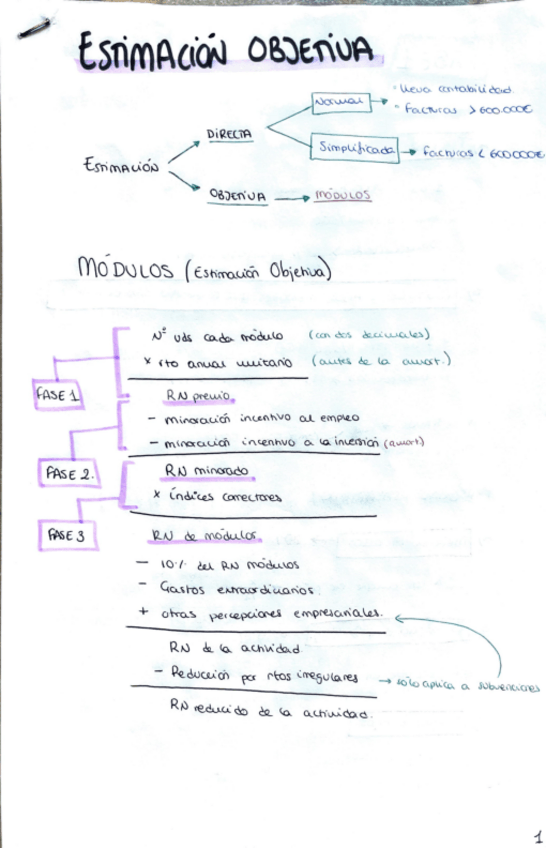 ESTIMACIÓN OBJETIVA
Normal
· lleva contabilidad.
- Facturas > 600.000€
DIRECTA
Simplificada
Facturas < 600000€
ESTIMACIÓN
OBJETIVA
MÓDULOS
MÓDULOS (Estimación Objetiva)
Nº uds cada módulo (con dos decimales)
x rto anual unitario (antes de la amort.)
FASE 1
RN previo.
- minoración incentivo al empleo
- minoración incentivo a la inversión (amort)
FASE 2.
RN minorado
x índices correctores
FASE 3
RN de módulos.
- 10% del RN módulos
- Gastos extraordinarios.
+ otras percepciones empresariales.
RN de la actividad
- Reducción por rtos irregulares → sólo aplica a subvenciones
RN reducido de la actividad.
1